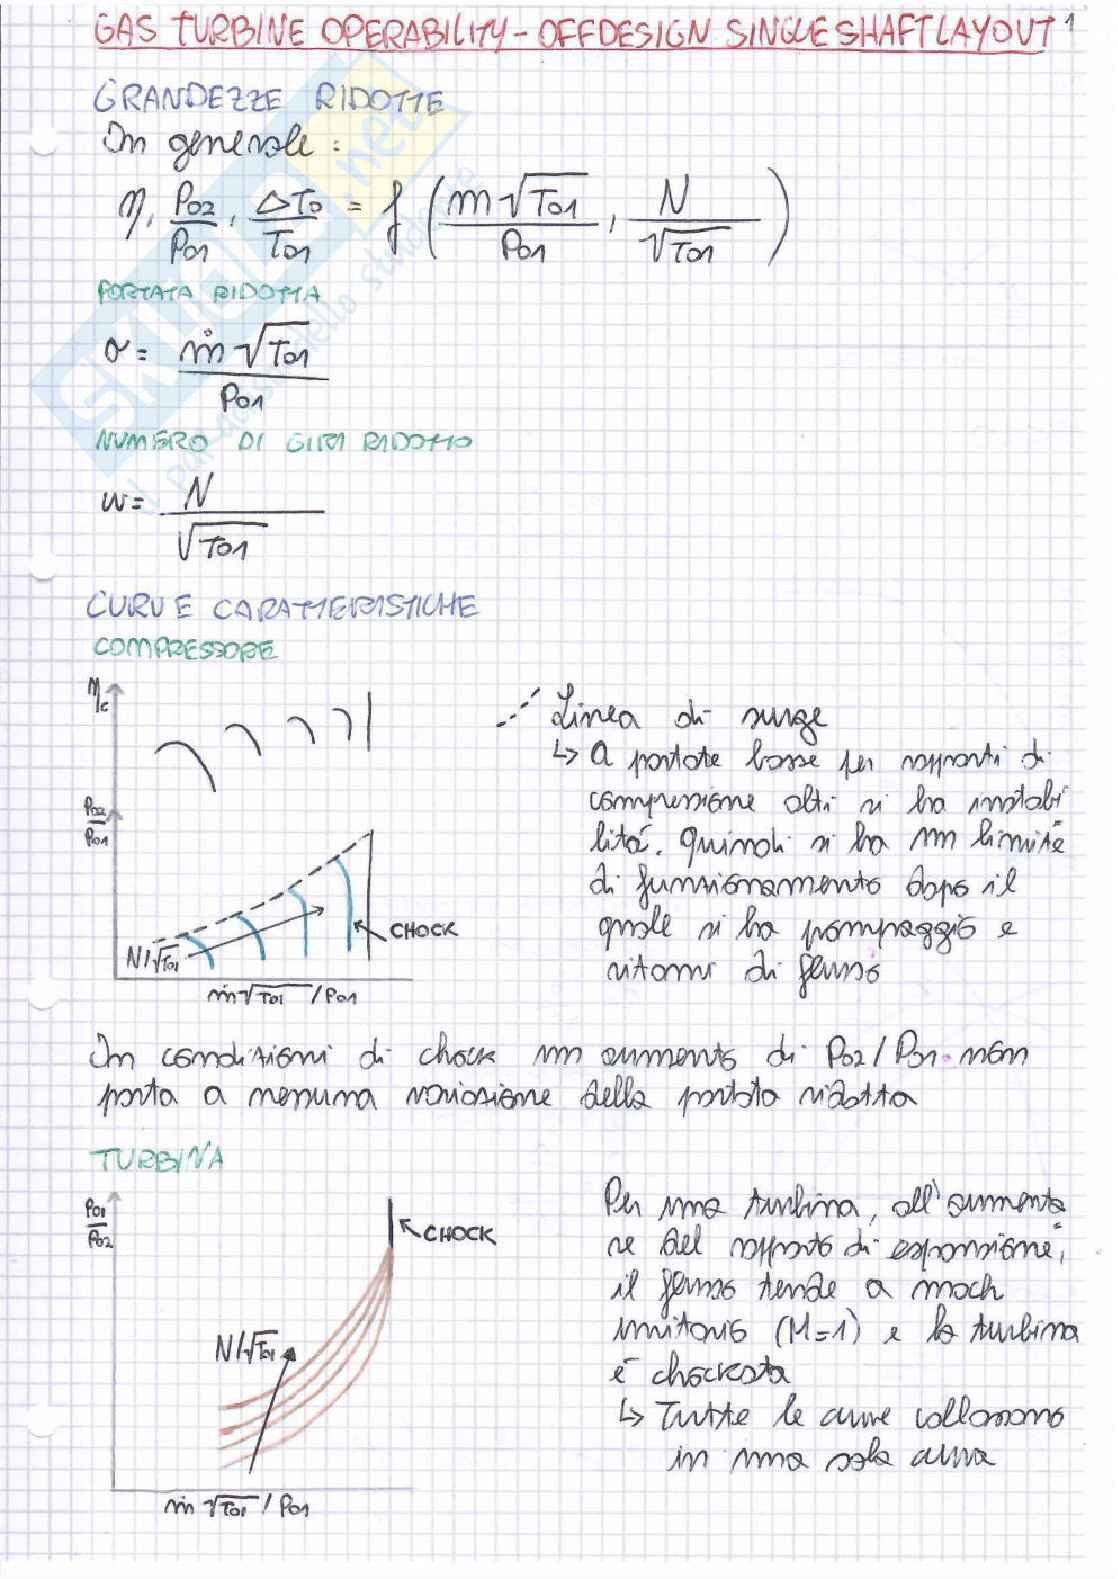 GAS TURBINE OPERABILITY - OFFDESIGN SINGLE SHAFT LAYOUT 1
GRANDEZZE RIDOTTE
In generale :
η, P02/P01, ΔT0/T01 = f ( m√T01/P01, N/√T01 )
PORTATA RIDOTTA
σ = ṁ√T01/P01
NUMERO DI GIRI RIDOTTO
w = N/√T01
CURVE CARATTERISTICHE
COMPRESSORE
ηc
P02/P01
N/√T01
CHOCK
ṁ√T01/P01
Linea di surge
↳ A portate basse per rapporti di
compressione alti si ha instabi
lità. Quindi si ha un limite
di funzionamento dopo il
quale si ha pompaggio e
ritorni di flusso
In condizioni di chock un aumento di P02/P01 non
porta a nessuna variazione della portata ridotta
TURBINA
P01/P02
CHOCK
N/√T01
ṁ√T01/P01
Per una turbina, all'aumenta
re del rapporto di espansione,
il flusso tende a mach
unitario (M=1) e la turbina
è chockata
↳ Tutte le curve collassano
in una sola curva
SKUOLA.net